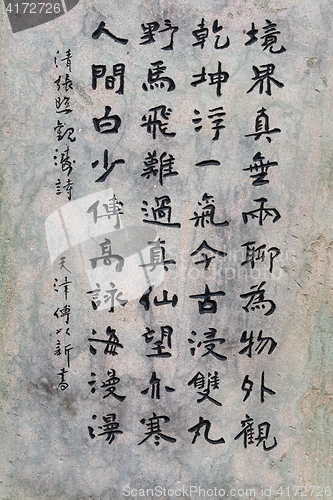 境界真無兩聊為物外觀
乾坤浮一氣今古浸雙丸
野馬飛難過真仙望亦寒
人間白少傅高詠海漫漫
清張照觀濤詩 天津傅以新書
© 4172726
© 4172726